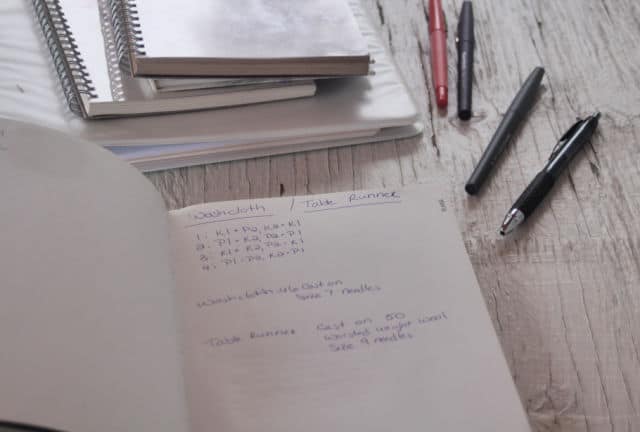 Washcloth / Table Runner
1: K1 * P2, K2 * K1
2: P1 * K2, P2 * P1
3: K1 * K2, P2 * K1
4: P1 * P2, K2 * P1
Washcloth 46 Cast on
Size 7 needles
Table Runner Cast on 50
worsted weight wool
Size 9 needles